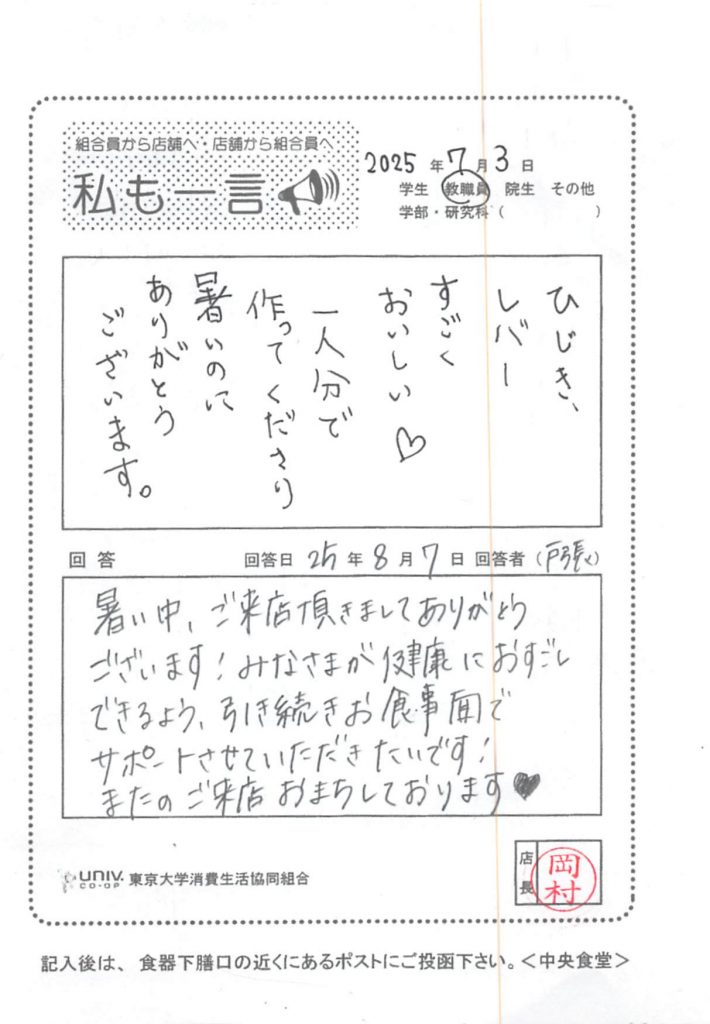 組合員から店舗へ・店舗から組合員へ
私も一言
2025年7月3日
学生 教職員 院生 その他
学部・研究科( )
ひじき、
レバー
すごく
おいしい♡
一人分で
作ってくださり
暑いのに
ありがとう
ございます。
回答 回答日 25年8月7日 回答者(戸張)
暑い中、ご来店頂きましてありがとう
ございます!みなさまが健康におすごし
できるよう、引き続きお食事面で
サポートさせていただきたいです!
またのご来店おまちしております♥
店長
岡村
UNIV.
CO-OP
東京大学消費生活協同組合
記入後は、食器下膳口の近くにあるポストにご投函下さい。<中央食堂>